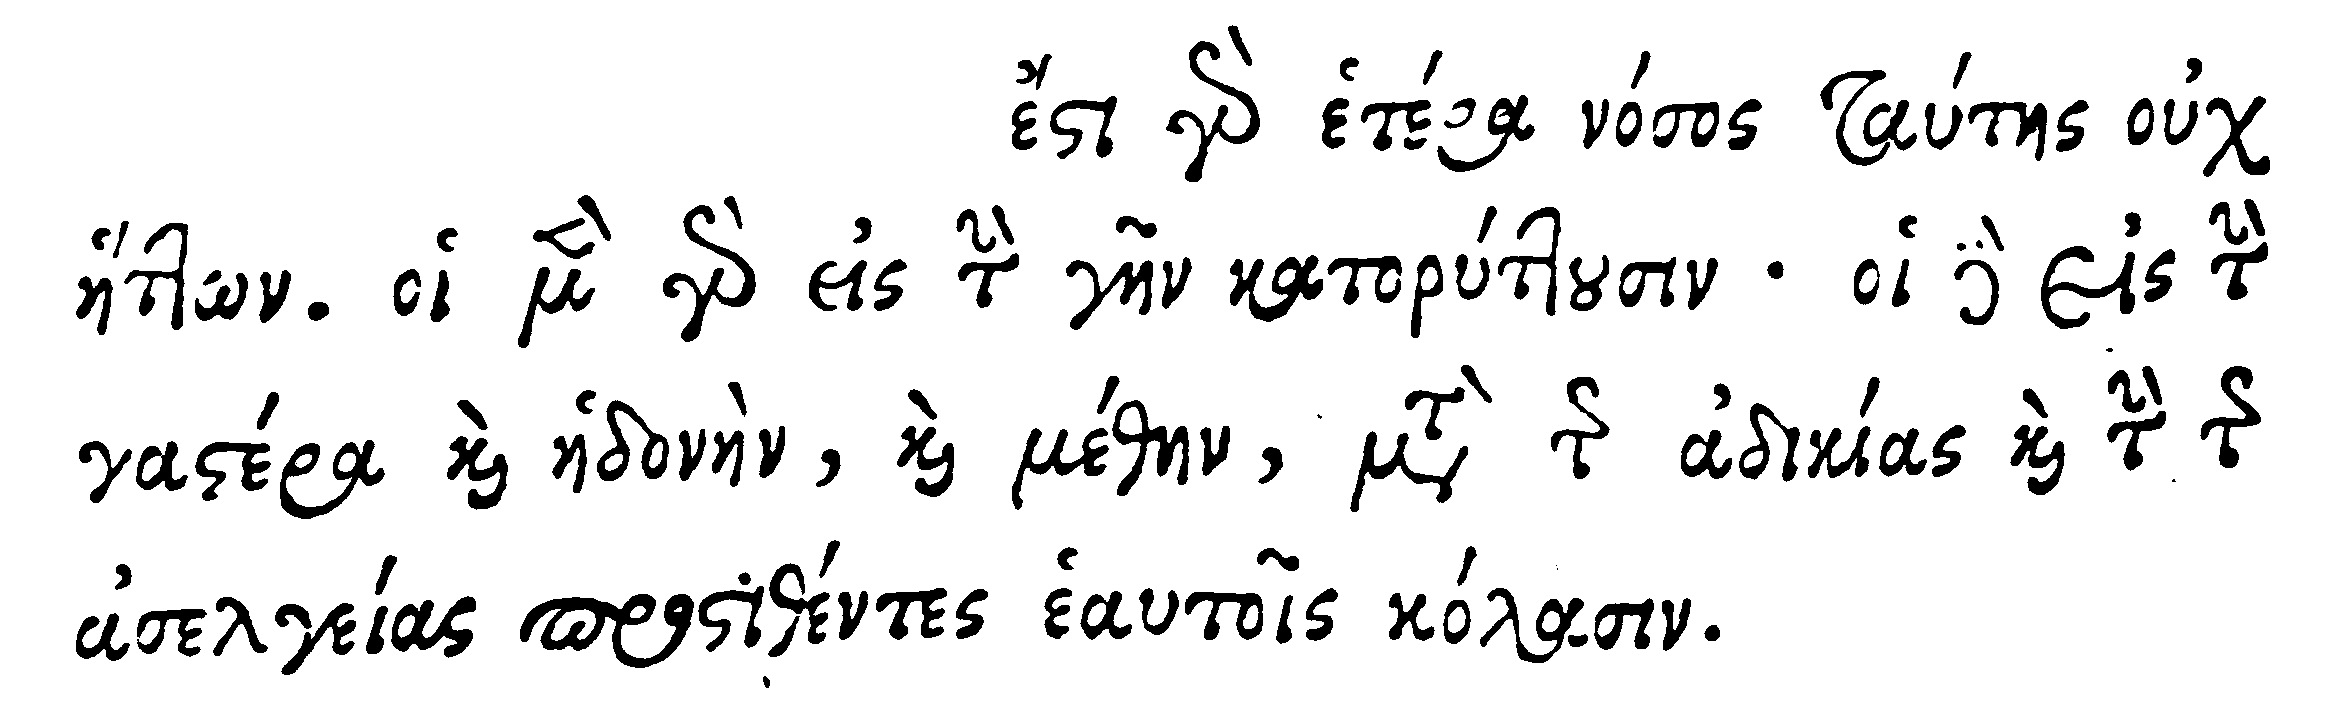 ἔστι γὰρ ἑτέρα νόσος ταύτης οὐχ
ἥττων. οἱ μὲν γὰρ εἰς τὴν γῆν κατορύττουσιν · οἱ δὲ εἰς τὴν
γαστέρα καὶ ἡδονὴν, καὶ μέθην, μετὰ τῆς ἀδικίας καὶ τὴν τῆς
ἀσελγείας προστιθέντες ἑαυτοῖς κόλασιν.